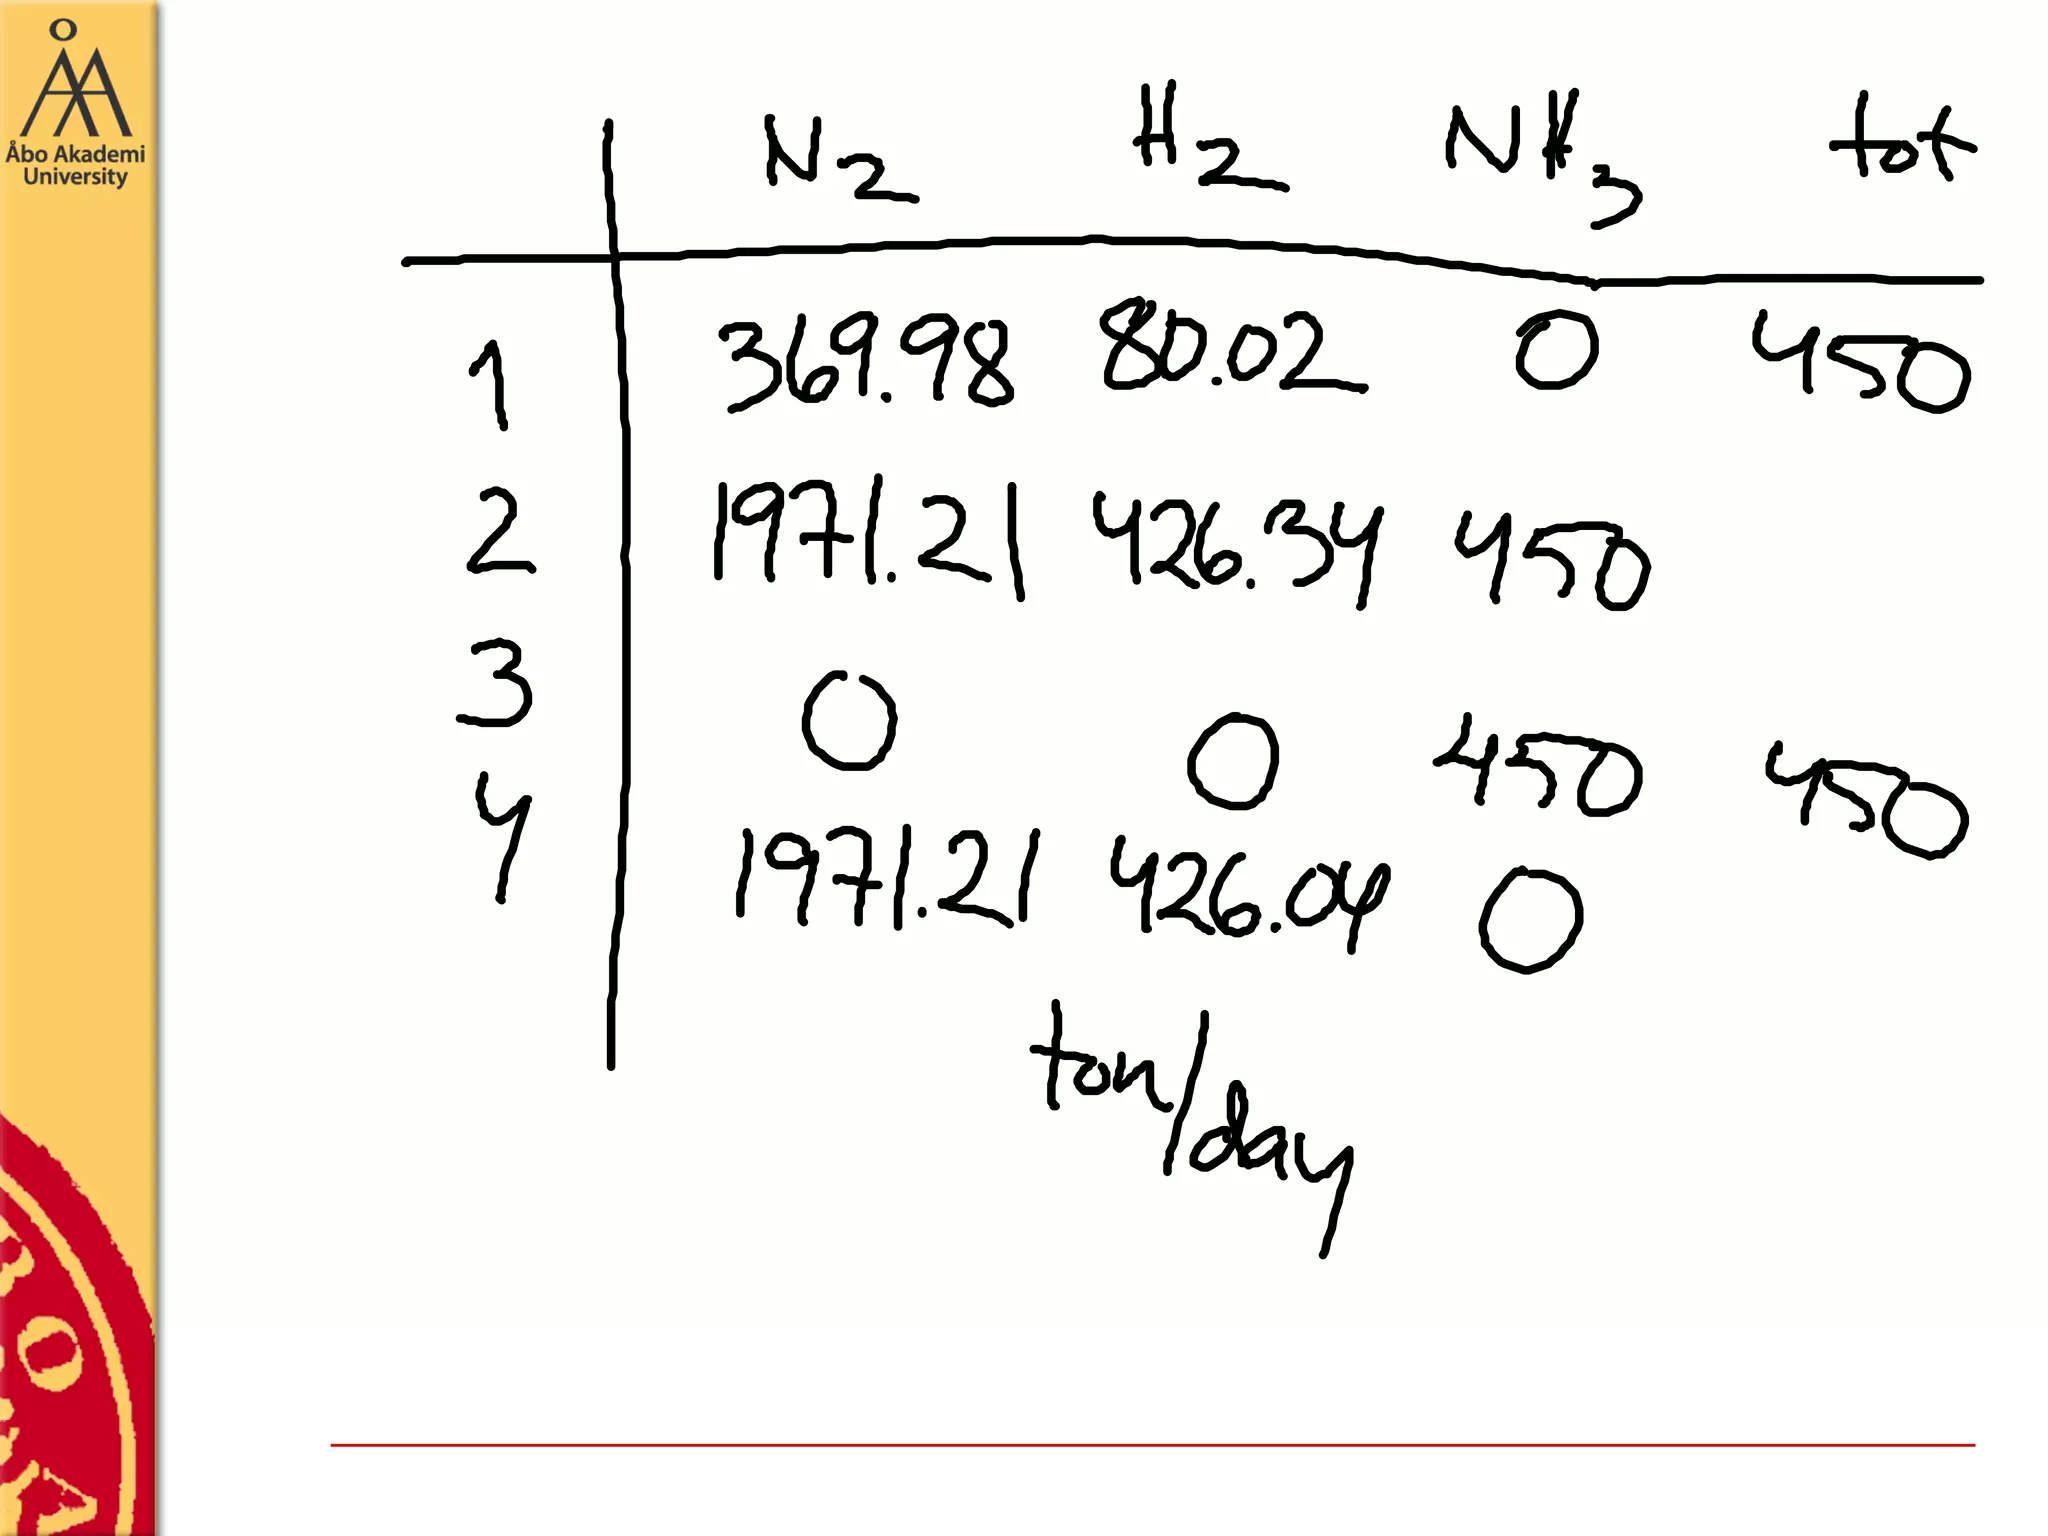 Åbo Akademi
University
N2 H2 NH3 tot
1 369.98 80.02 0 450
2 1971.21 426.34 450
3 0 0 450 450
4 1971.21 426.04 0
ton/day